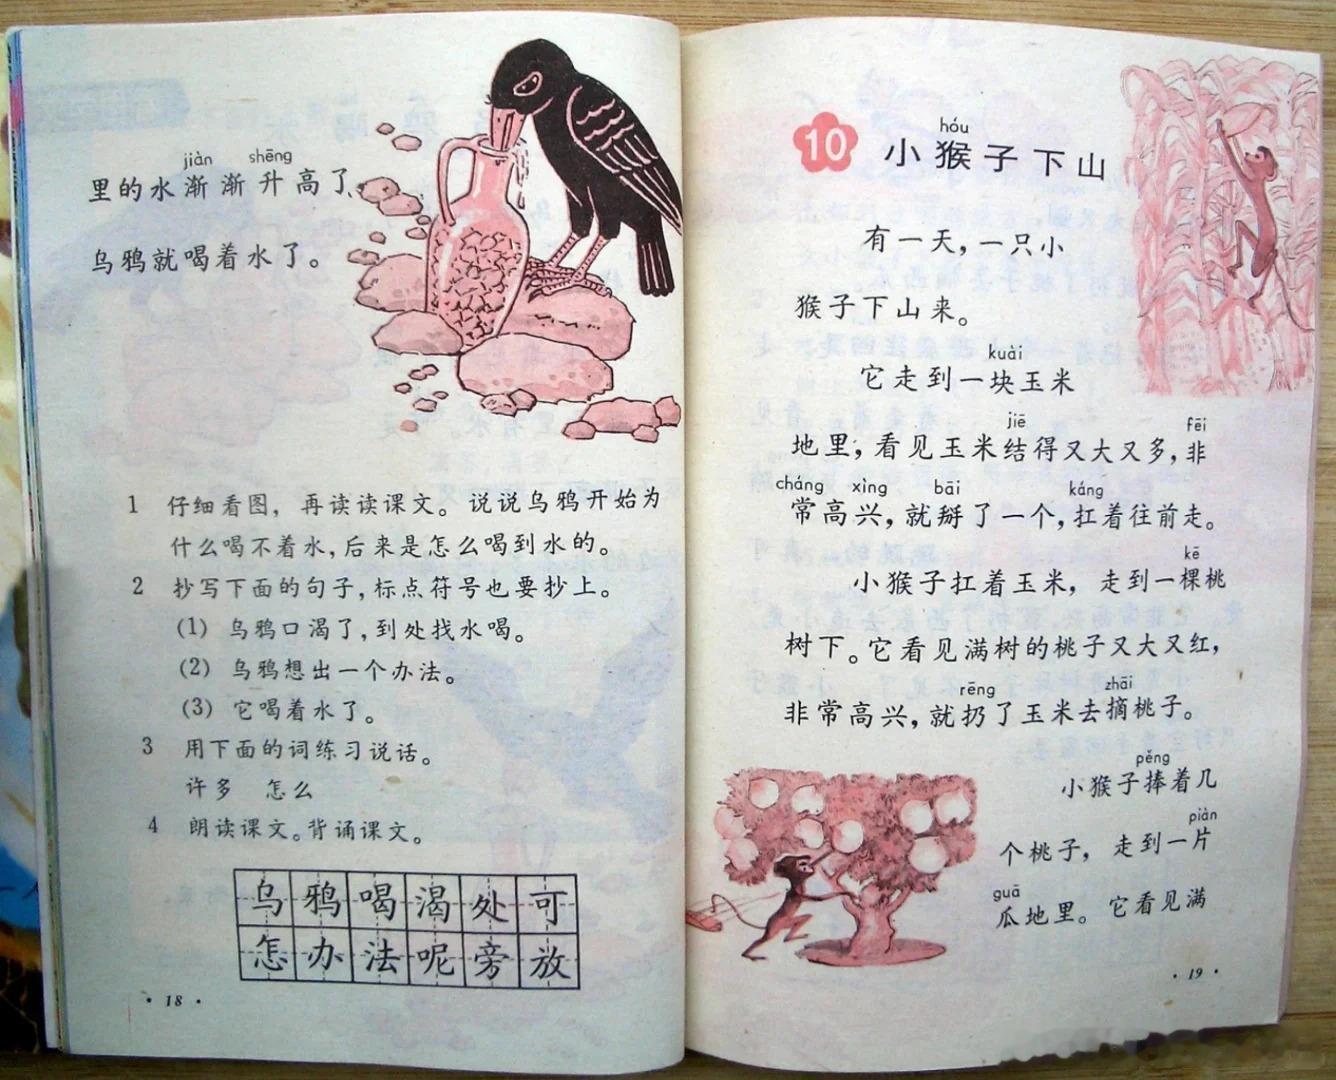 jiàn shēng
里的水渐渐升高了,
乌鸦就喝着水了。
1 仔细看图，再读读课文。说说乌鸦开始为
什么喝不着水,后来是怎么喝到水的。
2 抄写下面的句子,标点符号也要抄上。
(1) 乌鸦口渴了,到处找水喝。
(2) 乌鸦想出一个办法。
(3) 它喝着水了。
3 用下面的词练习说话。
许多 怎么
4 朗读课文。背诵课文。
乌鸦喝渴处可
怎办法呢旁放
· 18 ·
hóu
10 小猴子下山
有一天，一只小
猴子下山来。
kuài
它走到一块玉米
jiē fēi
地里，看见玉米结得又大又多,非
cháng xìng bāi káng
常高兴，就掰了一个,扛着往前走。
kē
小猴子扛着玉米，走到一棵桃
树下。它看见满树的桃子又大又红,
rēng zhāi
非常高兴，就扔了玉米去摘桃子。
pěng
小猴子捧着几
piàn
个桃子，走到一片
guā
瓜地里。它看见满
· 19 ·